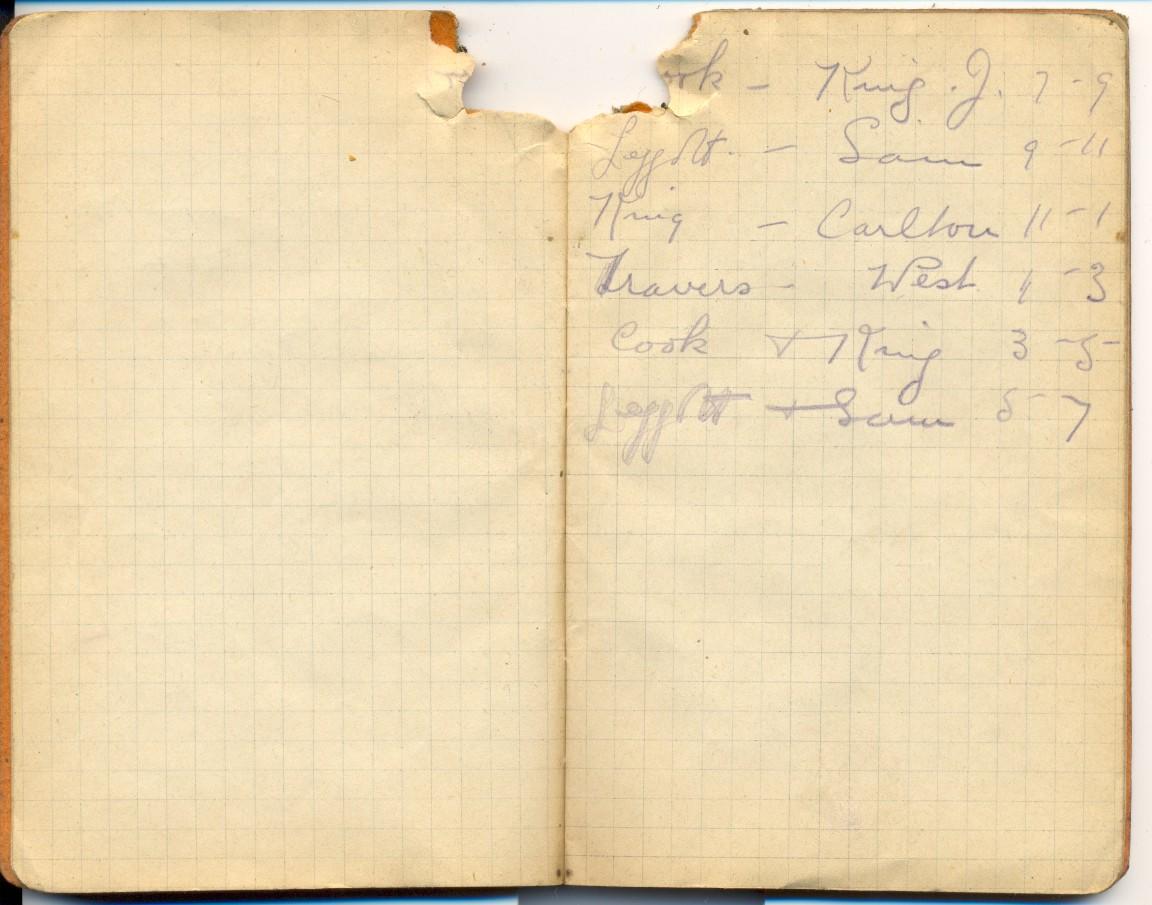 ook - King. J. 7-9
Leggitt. - Sam 9-11
King - Carlton 11-1
Travers - West 1-3
Cook + King 3-5
Leggitt + Sam 5-7